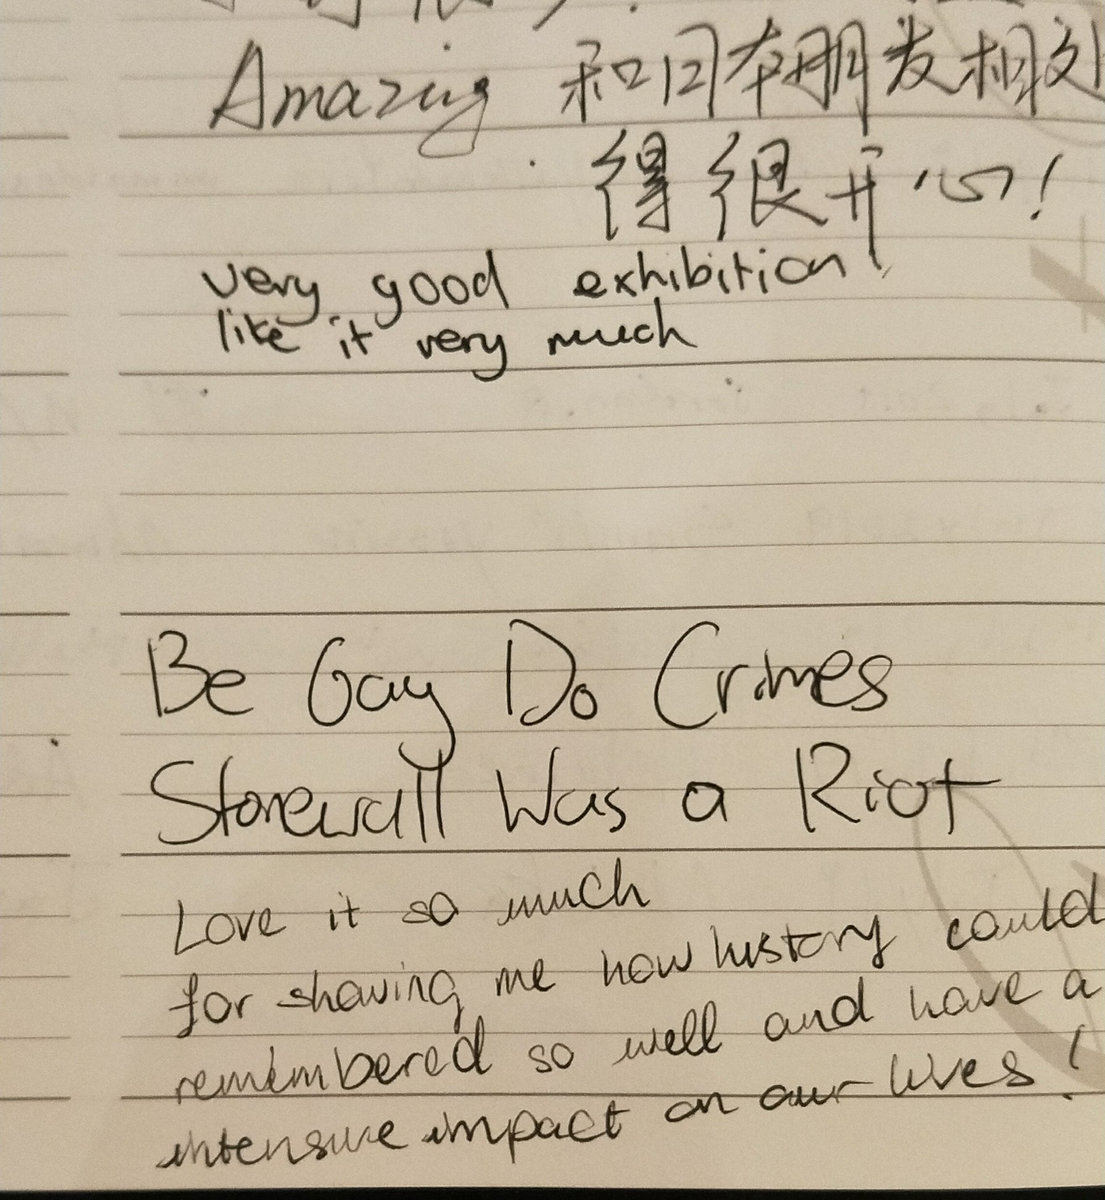 Amazing 和日本朋友相处
得很开心!
very good exhibition!
like it very much
Be Gay Do Crimes
Stonewall Was a Riot
Love it so much
for showing me how history could
remembered so well and have a
intensive impact on our lives!